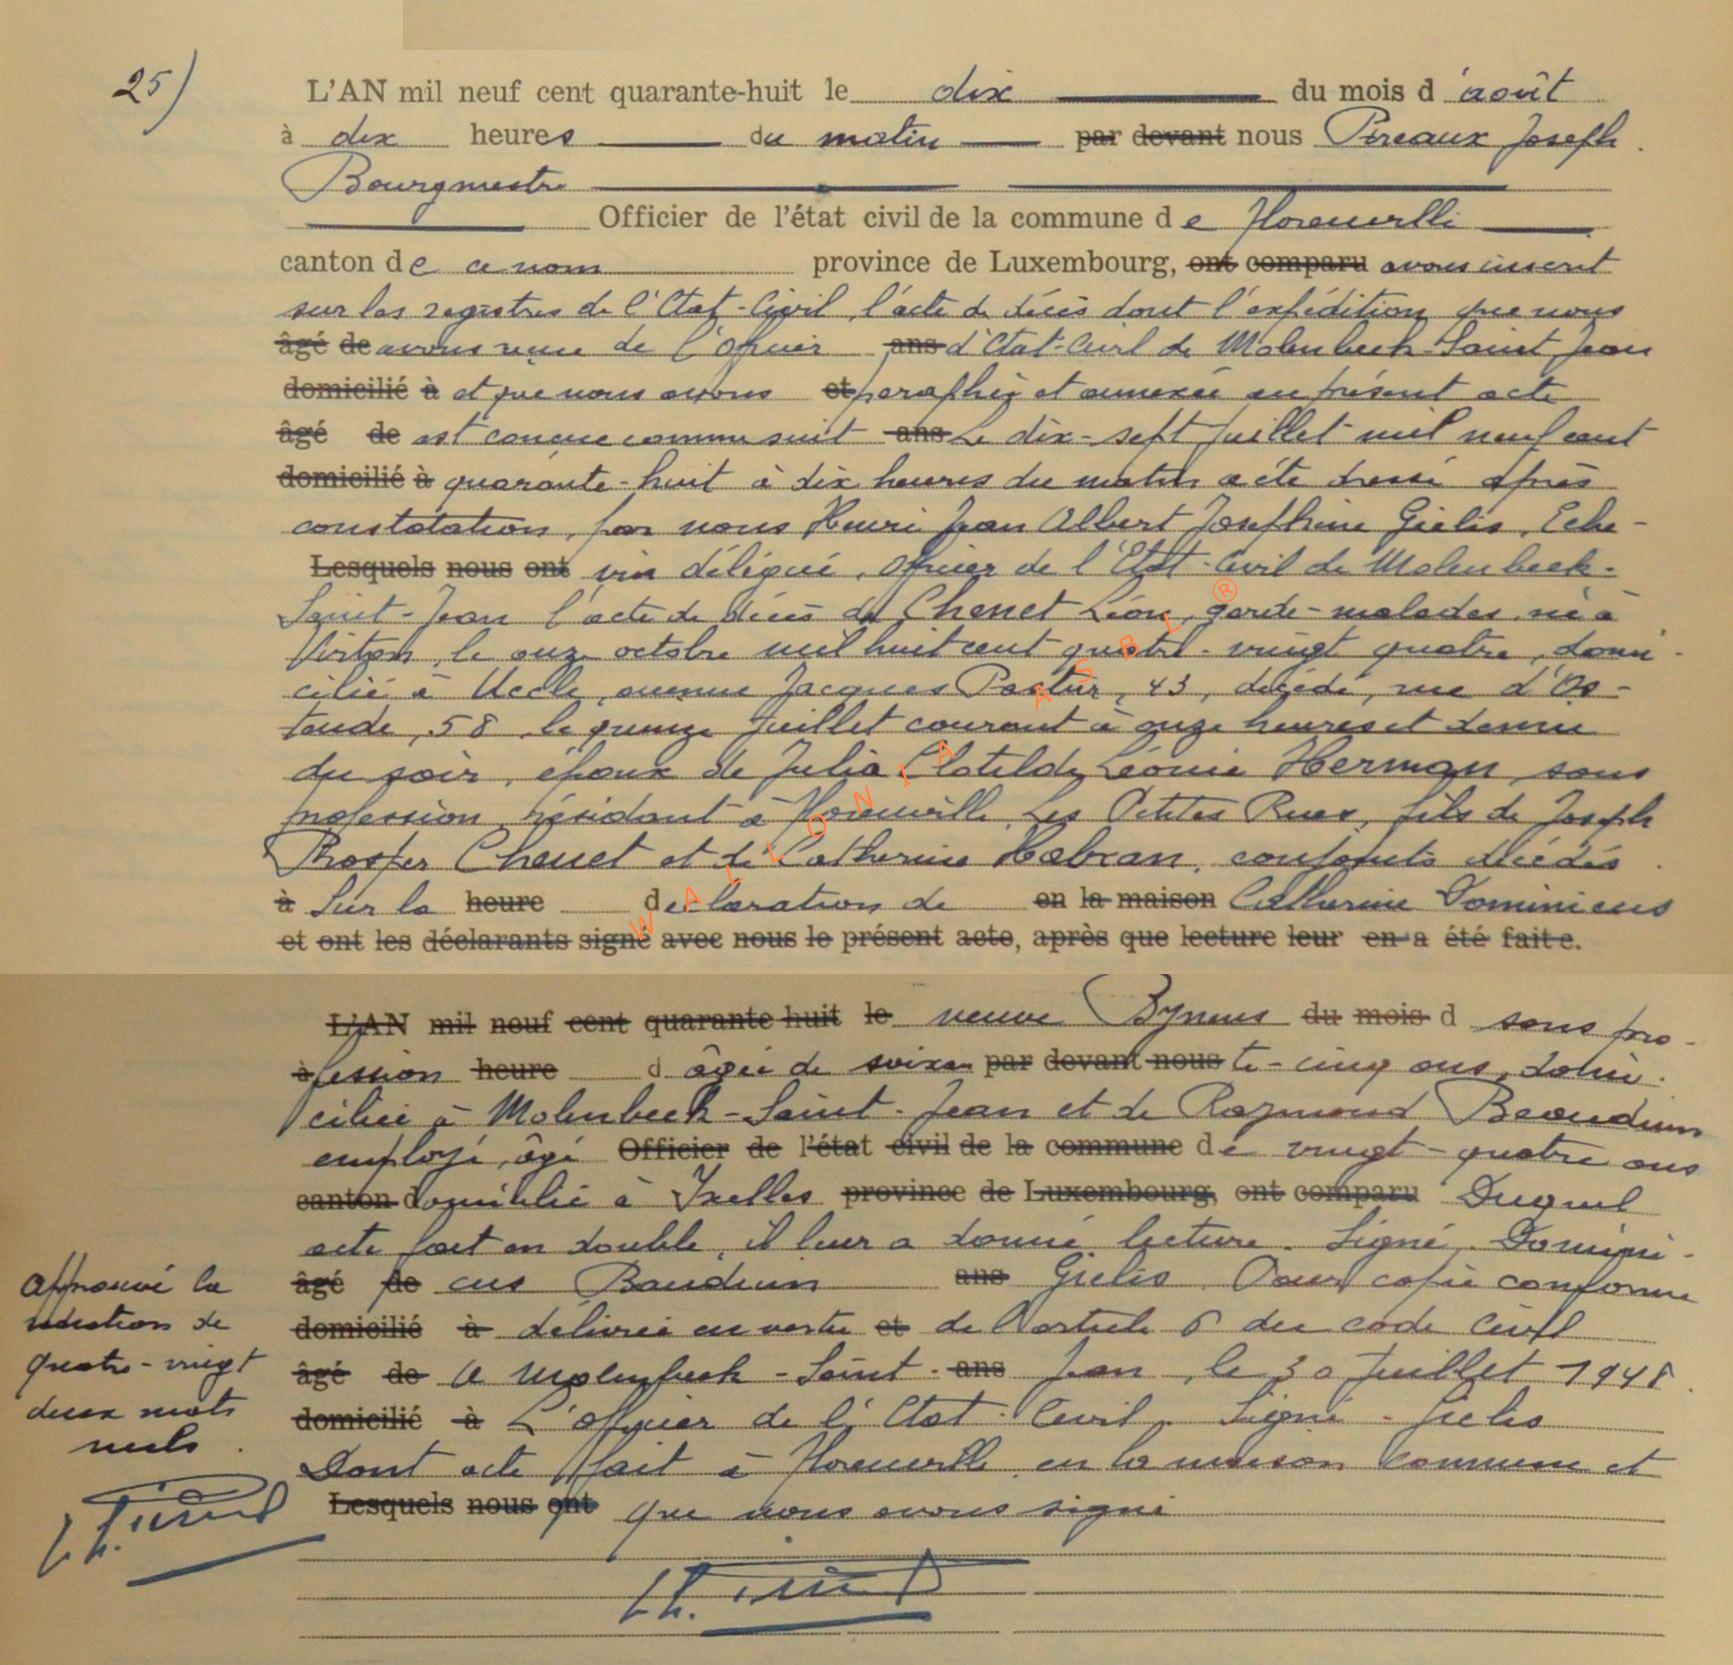 25)
L'AN mil neuf cent quarante-huit le dix du mois d'août
à dix heures du matin par devant nous Pireaux Joseph
Bourgmestre
Officier de l'état civil de la commune de Florenville
canton de ce nom province de Luxembourg, ont comparu avons inscrit
sur les registres de l'Etat-Civil, l'acte de décès dont l'expédition que nous
âgé de avons reçue de l'Officier ans d'Etat-Civil de Molenbeek-Saint Jean
domicilié à et que nous avons et paraphée et annexée au présent acte
âgé de est conçue comme suit ans Le dix-sept juillet mil neuf cent
domicilié à quarante-huit à dix heures du matin acte dressé après
constatation, par nous Henri Jean Albert Joséphine Gielis, Eche-
Lesquels nous ont vin délégué, officier de l'Etat-Civil de Molenbeek-
Saint-Jean l'acte de décès de Chenet Léon, garde-malades, né à
Virton, le onze octobre mil huit cent quatre-vingt quatre, domi-
cilié à Uccle, avenue Jacques Pastur, 43, décédé, rue d'Os-
tende, 58, le quinze juillet courant à onze heures et demie
du soir, époux de Julia Clotilde Léonie Herman, sans
profession, résidant à Florenville, Les Petites Rues, fils de Joseph
Prosper Chenet et de Catherine Habran, conjoints décédés.
à Sur la heure declaration de en la maison Catherine Dominicus
et ont les déclarants signé avec nous le présent acte, après que lecture leur en a été faite.
WALLONIA ASBL ®
L'AN mil neuf cent quarante-huit le veuve Bynens du mois d sans pro-
à fession heure d âgée de soixan par devant nous te-cinq ans, domi-
ciliée à Molenbeek-Saint-Jean et de Raymond Beauduin
employé, âgé Officier de l'état civil de la commune de vingt-quatre ans
canton domicilié à Ixelles province de Luxembourg, ont comparu Duquel
acte fait en double, il leur a donné lecture. Signé, Domini-
âgé de cus Bauduin ans Gielis. Pour copie conforme
domicilié à délivrée en vertu et de l'article 6 du code civil
âgé de A Molenbeek-Saint- ans Jean, le 30 juillet 1948.
domicilié à L'officier de l'Etat-Civil, Signé - Gielis
Dont acte fait à Florenville en la maison commune et
Lesquels nous ont que nous avons signé
Approuvé la
radiation de
quatre-vingt
deux mots
nuls.